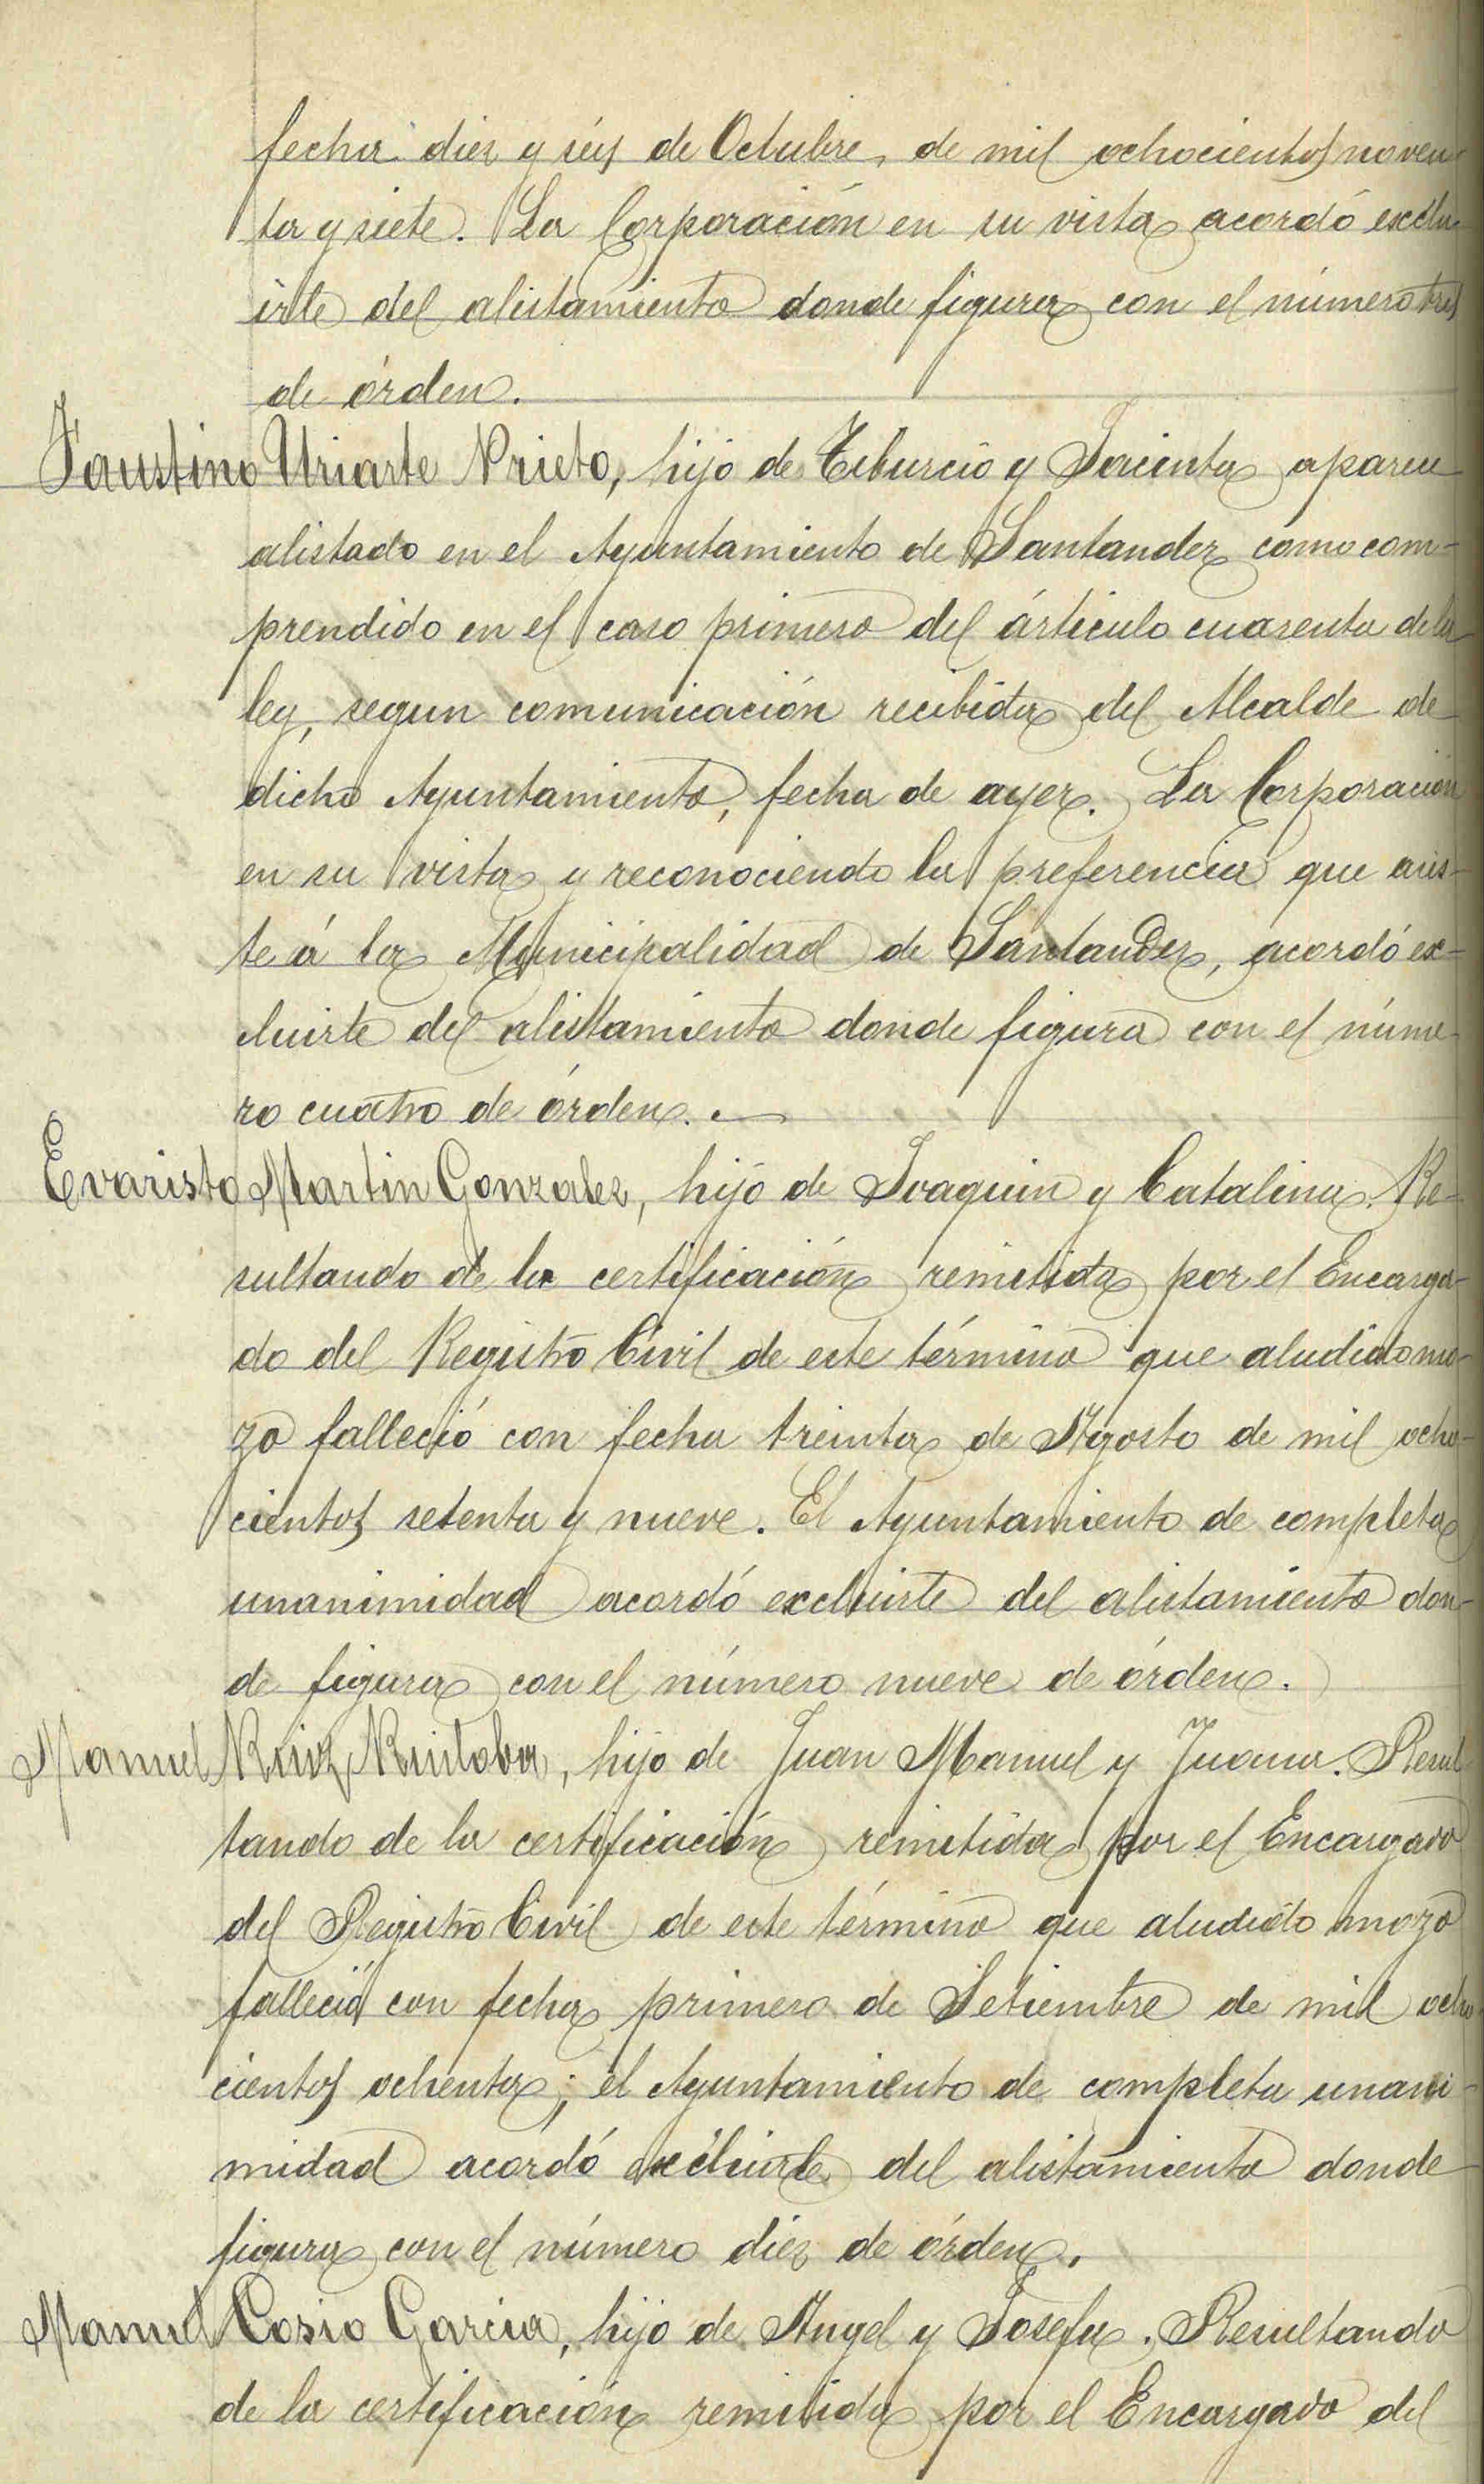 fecha diez y seis de Octubre, de mil ochocientos noven-
ta y siete. La Corporación en su vista acordó exclu-
irle del alistamiento donde figura con el número tres
de órden.
Faustino Uriarte Prieto, hijo de Tiburcio y Jacinta aparece
alistado en el Ayuntamiento de Santander como com-
prendido en el caso primero del árticulo cuarenta de la
ley, segun comunicación recibida del Alcalde de
dicho Ayuntamiento, fecha de ayer. La Corporación
en su vista y reconociendo la preferencia que asis-
te á la Municipalidad de Santander, acordó ex-
cluirle del alistamiento donde figura con el núme-
ro cuatro de órden.
Evaristo Martin Gonzalez, hijo de Joaquin y Catalina. Re-
sultando de la certificación remitida por el Encarga-
do del Registro Civil de este término que aludido mo-
zo falleció con fecha treinta de Agosto de mil ocho-
cientos setenta y nueve. El Ayuntamiento de completa
unanimidad acordó excluirle del alistamiento don-
de figura con el número nueve de órden.
Manuel Ruiz Ruiloba, hijo de Juan Manuel y Juana. Resul-
tando de la certificación remitida por el Encargado
del Registro Civil de este término que aludido mozo
falleció con fecha primero de Setiembre de mil ocho
cientos ochenta; el Ayuntamiento de completa unani-
midad acordó excluirle del alistamiento donde
figura con el número diez de órden.
Manuel Cosio Garcia, hijo de Angel y Josefa. Resultando
de la certificación remitida por el Encargado del